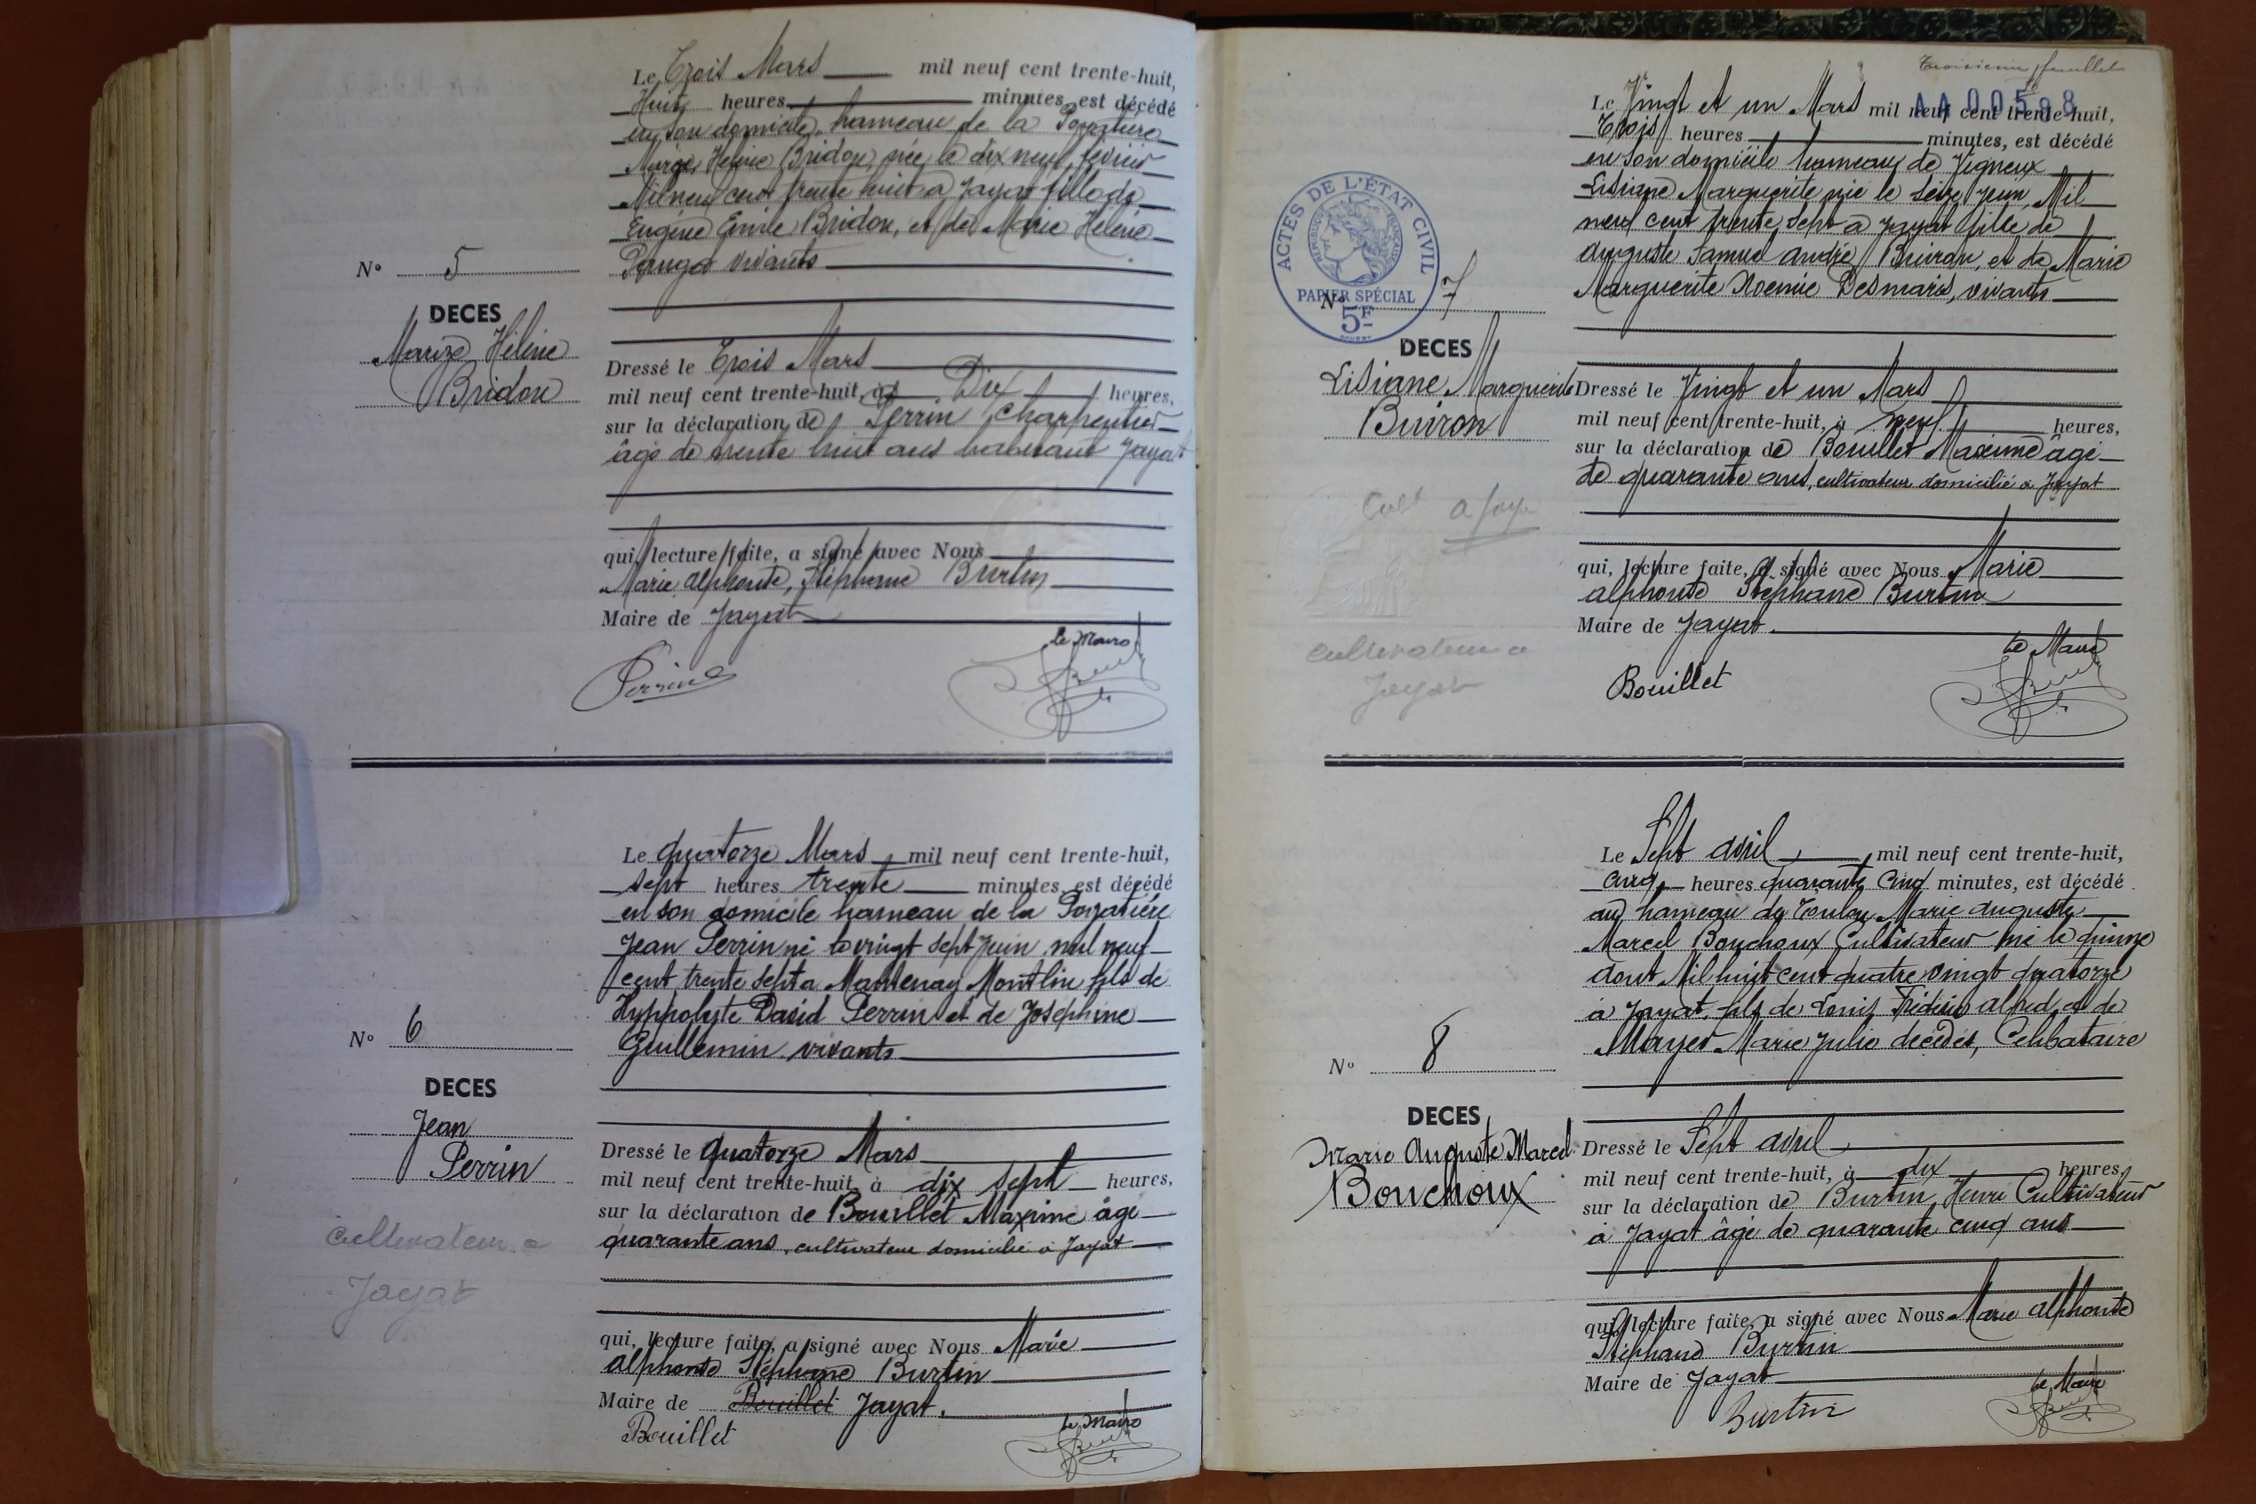 Le Trois Mars mil neuf cent trente-huit,
Huit heures minutes, est décédé
en son domicile, hameau de la Pozatière
Marize Hélène Bridon, née le dix neuf février
Mil neuf cent trente huit à Jayat fille de
Eugène Emile Bridon, et de Marie Hélène
vivants
N° 5
DECES
Marize Hélène
Bridon
Dressé le Trois Mars
mil neuf cent trente-huit, à Dix heures,
sur la déclaration de Perrin Charpentier
âgé de trente huit ans habitant Jayat
qui, lecture faite, a signé avec Nous
Marie Alphonse, Stéphane Burtin
Maire de Jayat
Le Maire
Perrin
Le quatorze Mars mil neuf cent trente-huit,
sept heures trente minutes, est décédé
en son domicile hameau de la Pozatière
Jean Perrin né le vingt sept Juin mil neuf
cent trente sept a Mantenay Montlin fils de
Hyppolyte David Perrin et de Joséphine
Guillemin vivants
N° 6
DECES
Jean
Perrin
cultivateur a
Jayat
Dressé le quatorze Mars
mil neuf cent trente-huit, à dix sept heures,
sur la déclaration de Bouillet Maxime âgé
quarante ans, cultivateur domicilié à Jayat
qui, lecture faite, a signé avec Nous Marie
alphonse Stéphane Burtin
Maire de Bouillet Jayat.
Le Maire
Bouillet
Troisième feuillet
AA 00588
Le Vingt et un Mars mil neuf cent trente-huit,
Trois heures minutes, est décédé
en son domicile hameau de Vigneux
Lisiane Marguerite née le Seize Juin, Mil
neuf cent trente sept à Jayat fille de
Auguste Samuel André Buiron, et de Marie
Marguerite Noémie Desmaris, vivants
ACTES DE L'ÉTAT CIVIL
RÉPUBLIQUE FRANÇAISE
PAPIER SPÉCIAL
5F
N° 7
DECES
Lisiane Marguerite
Buiron
Cult a Jayat
cultivateur a
Jayat
Dressé le Vingt et un Mars
mil neuf cent trente-huit, à neuf heures,
sur la déclaration de Bouillet Maxime âgé
de quarante ans, cultivateur domicilié à Jayat
qui, lecture faite, a signé avec Nous Marie
alphonse Stéphane Burtin
Maire de Jayat.
Le Maire
Bouillet
Le Sept avril mil neuf cent trente-huit,
cinq heures quarante cinq minutes, est décédé
au hameau de Toulon Marie auguste
Marcel Bouchoux Cultivateur né le quinze
août Mil huit cent quatre vingt quatorze
à Jayat, fils de Louis Frédéric alfred et de
Moyer Marie Julie décédés, Célibataire
N° 8
DECES
Marie Auguste Marcel
Bouchoux
Dressé le Sept avril
mil neuf cent trente-huit, à dix heures,
sur la déclaration de Burtin Henri Cultivateur
à Jayat âgé de quarante cinq ans
qui, lecture faite, a signé avec Nous Marie alphonse
Stéphane Burtin
Maire de Jayat
Le Maire
Burtin